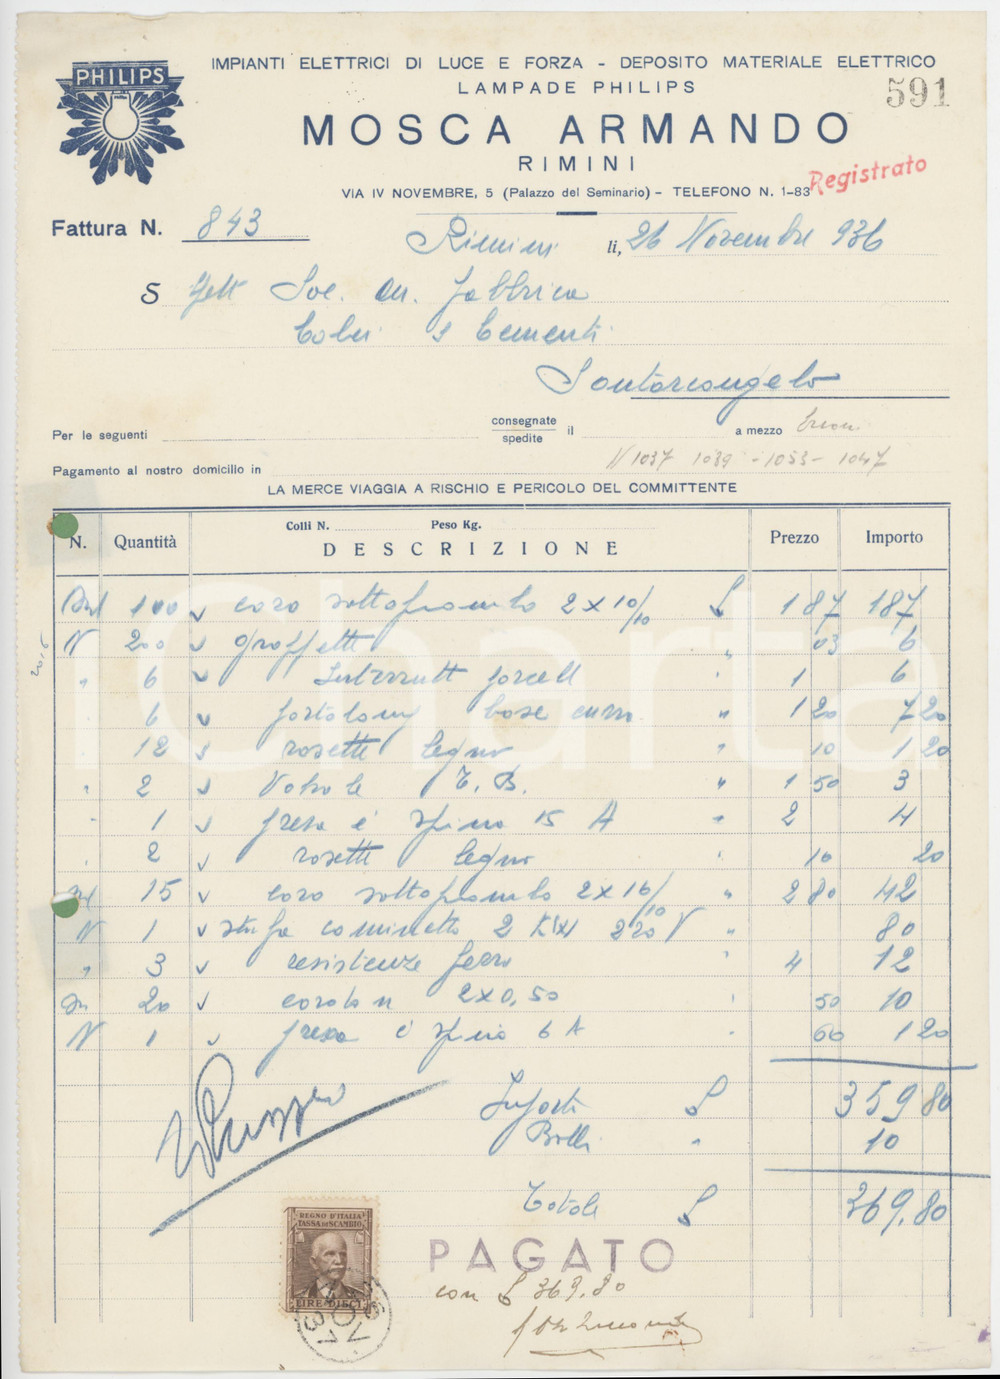 PHILIPS
IMPIANTI ELETTRICI DI LUCE E FORZA - DEPOSITO MATERIALE ELETTRICO
LAMPADE PHILIPS
591
MOSCA ARMANDO
RIMINI
Registrato
VIA IV NOVEMBRE, 5 (Palazzo del Seminario) - TELEFONO N. 1-83
Fattura N. 843
Rimini li, 26 Novembre 936
S Soc. An. Fabbrica
Cementi
Santarcangelo
Per le seguenti consegnate spedite il a mezzo
N 1037 1039 - 1053 - 1047
Pagamento al nostro domicilio in
LA MERCE VIAGGIA A RISCHIO E PERICOLO DEL COMMITTENTE
Colli N. Peso Kg.
N. Quantità DESCRIZIONE Prezzo Importo
100 sottopiombo 2 x 10/10 £ 187 187
N 200 graffette " 03 6
" 6 1 6
6 base " 1 20 7 20
12 rosette legno " 10 1 20
" 2 T. B. " 1 50 3
" 1 presa e spina 15 A " 2 4
" 2 rosette legno " 10 20
15 sottopiombo 2 x 10/10 " 2 80 42
N 1 stufa caminetto 2 220 V " 80
" 3 resistenze ferro " 4 12
20 2 x 0,50 " 50 10
N 1 presa e spina 6 A " 60 1 20
Importo £ 359 80
Bolli " 10
Totale £ 369,80
REGNO D'ITALIA
TASSA DI SCAMBIO
LIRE DIECI
PAGATO
con £ 369.80
iCharta